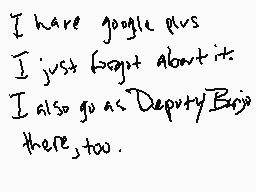 I have google plus
I just forgot about it.
I also go as Deputy Banjo
there, too.